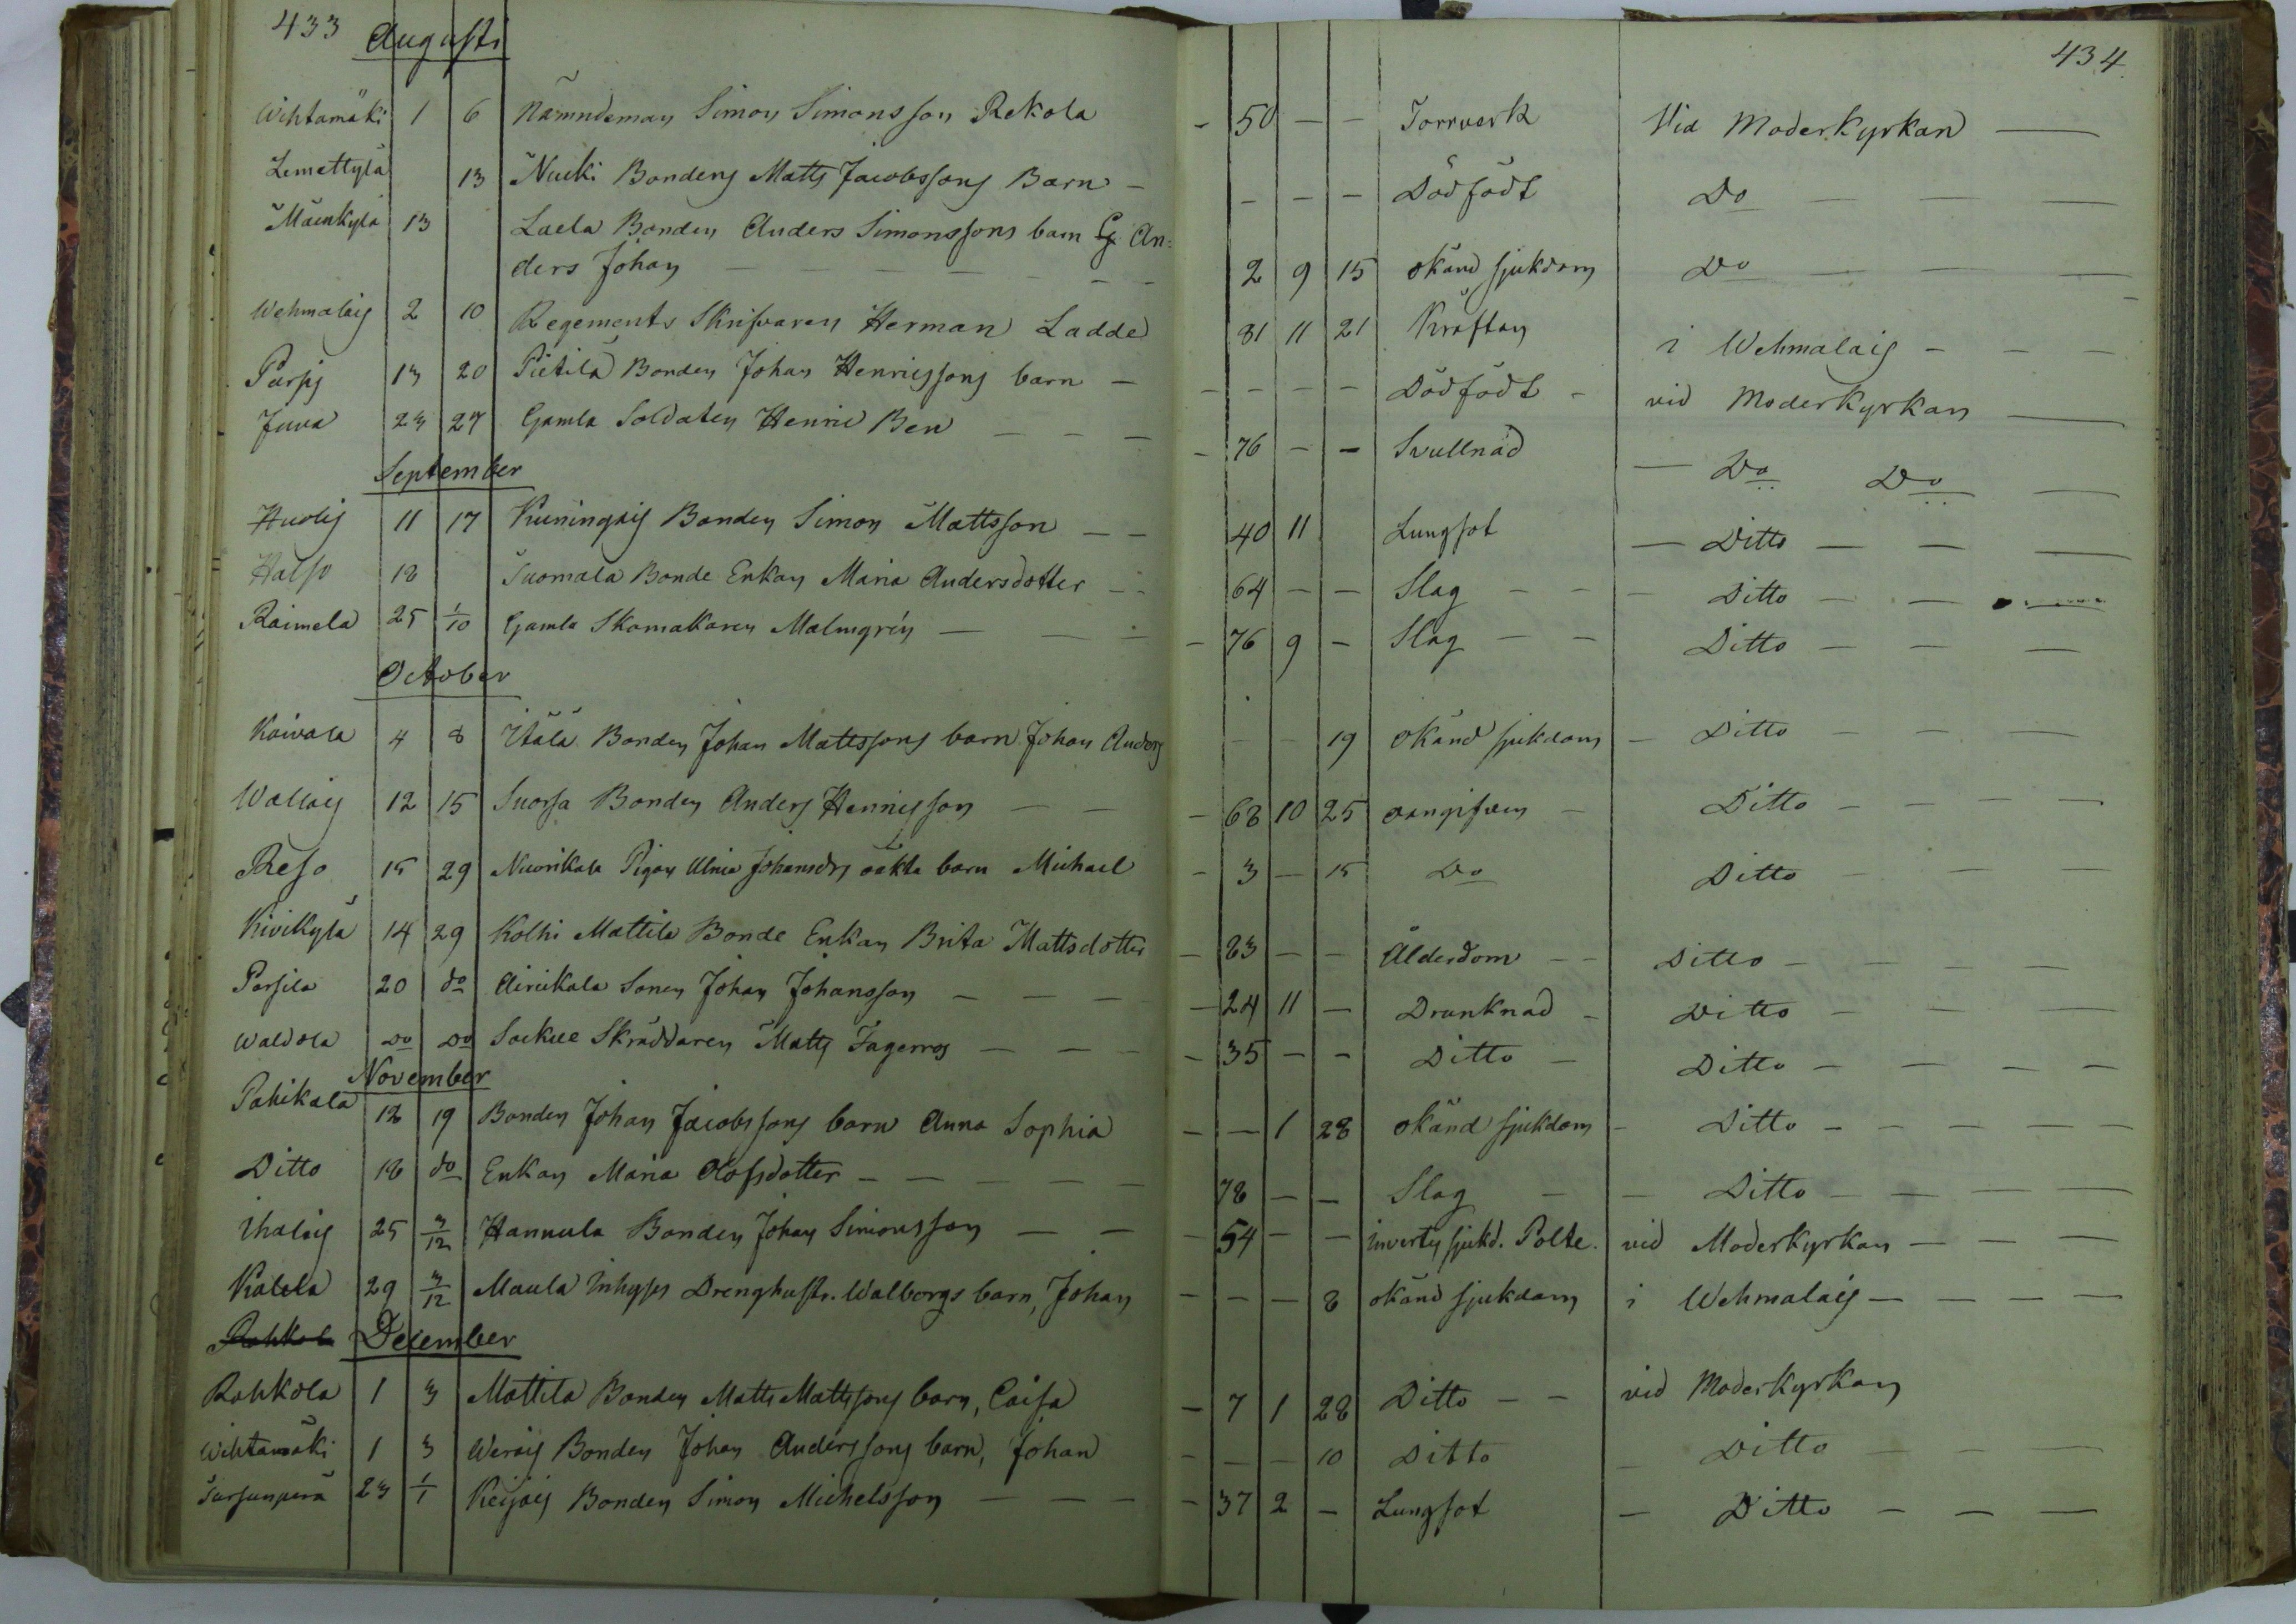 433 Augusti
434.
Wihtamäki 1 6 Nämndeman Simon Simonsson Rekola - 50 - - Torrverk Vid Moderkyrkan
Lemettylä 13 Nuuki Bonden Matts Jacobssons Barn - - - - Dödfödt Do
Mäenkylä 13 Laela Bonden Anders Simonssons barn An-
ders Johan 2 9 15 okänd sjukdom Do
Wehmalais 2 10 Regements Skrifvaren Herman Ladde 81 11 21 Kräftan i Wehmalais
13 20 Pietilä Bonden Johan Henricssons barn - - - - - Dödfödt - vid Moderkyrkan
Juva 23 27 Gamla Soldaten Henric Ben - 76 - - Svullnad - Do Do
September
11 17 Kuningais Bonden Simon Mattsson - - 40 11 Lungsot - Ditto
18 Suomala Bonde Enkan Maria Andersdotter - - 64 - - Slag - Ditto
Raimela 25 1/10 Gamla Skomakaren Malmgrén - 76 9 - Slag - - Ditto
October
Kaivola 4 8 Itälä Bonden Johan Mattssons barn Johan Anders - - 19 okänd sjukdom - Ditto
Wallais 12 15 Suorsa Bonden Anders Henricsson - - 68 10 25 oangifven - Ditto
Reso 15 29 Nuorikala Pigan Ulrica Johansdrs oäkta barn Michael - 3 - 15 Do Ditto
Kivikylä 14 29 Kolhi Mattila Bonde Enkan Brita Mattsdotter - 83 - - Ålderdom - - Ditto
Parsila 20 do Airikala Sonen Johan Johansson - 24 11 - Drunknad - Ditto
Waldola Do Do Sockne Skräddaren Matts Fagerros - 35 - - Ditto - Ditto
November
Pahikala 12 19 Bonden Johan Jacobssons barn Anna Sophia - - 1 28 okänd sjukdom - Ditto
Ditto 18 do Enkan Maria Olofsdotter 78 - - Slag - Ditto
Ihalais 25 3/12 Hannula Bonden Johan Simonsson - 54 - - invertes sjukd. Polte. vid Moderkyrkan
Kalela 29 3/12 Maula Inhyses Drenghustr. Walborgs barn, Johan - - - 8 okänd sjukdom i Wehmalais
December
Rohkola 1 3 Mattila Bonden Matts Mattssons barn, Caisa - 7 1 28 Ditto - - vid Moderkyrkan
Wihtamäki 1 3 Werais Bonden Johan Anderssons barn, Johan - - - 10 Ditto - Ditto
Sursunperä 23 1/1 Keijais Bonden Simon Michelsson - 37 2 - Lungsot - Ditto